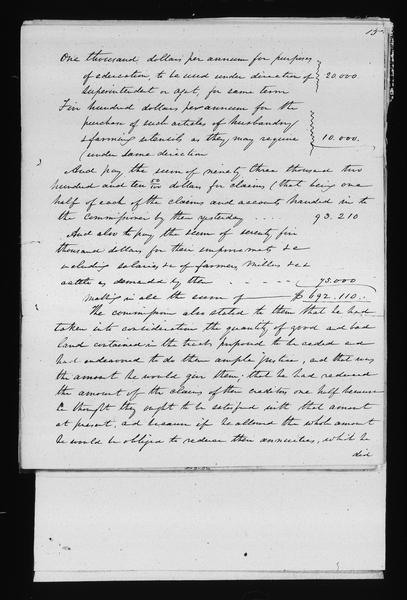 15
One thousand dollars per annum for purposes
of education, to be used under direction of 20.000
Superintendent or agt, for same term
Five hundred dollars per annum for the
purchase of such articles of husbandry
& farming utensils as they may require 10.000.
(under same direction
And pay the sum of ninety three thousand two
hundred and ten 00/100 dollars for claims (that being one
half of each of the claims and accounts handed in to
the Commissioner by them yesterday .... 93.210
And also to pay the sum of seventy five
thousand dollars for their improvements &c
including salaries &c of farmers Millers &c &
as demanded by them - - - - - 75.000
Making in all the sum of $692.110..
The Commissioner also stated to them that he had
taken into consideration the quantity of good and bad
land contained in the tracts proposed to be ceded and
had endeavored to do them ample justice, and that was
the amount he would give them; that he had reduced
the amount of the claims of their creditors one half because
he thought they ought to be satisfied with that amount
at present, and because if he allowed the whole amount
he would be obliged to reduce their annuities, which he
did